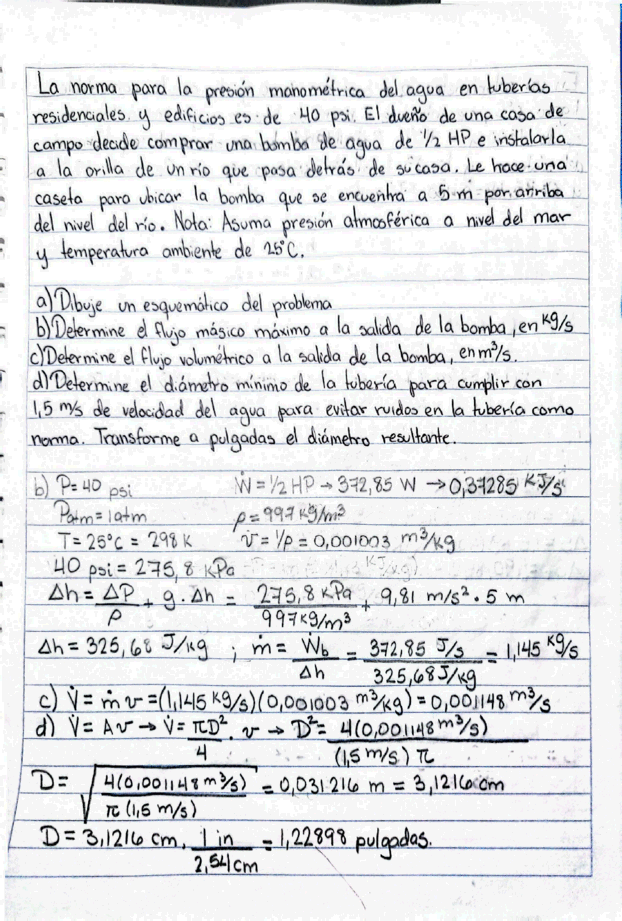 La norma para la presión manométrica del agua en tuberías
residenciales y edificios es de 40 psi. El dueño de una casa de
campo decide comprar una bomba de agua de 1/2 HP e instalarla
a la orilla de un río que pasa detrás de su casa. Le hace una
caseta para ubicar la bomba que se encuentra a 5 m por arriba
del nivel del río. Nota: Asuma presión atmosférica a nivel del mar
y temperatura ambiente de 25°C.
a) Dibuje un esquemático del problema
b) Determine el flujo másico máximo a la salida de la bomba, en kg/s
c) Determine el flujo volumétrico a la salida de la bomba, en m³/s.
d) Determine el diámetro mínimo de la tubería para cumplir con
1,5 m/s de velocidad del agua para evitar ruidos en la tubería como
norma. Transforme a pulgadas el diámetro resultante.
b) P= 40 psi Ẇ = 1/2 HP → 372,85 W → 0,37285 KJ/s
Patm = 1atm ρ = 997 kg/m³
T = 25°C = 298 K v = 1/ρ = 0,001003 m³/kg
40 psi = 275,8 kPa
Δh = ΔP/ρ + g. Δh = 275,8 kPa/997 kg/m³ + 9,81 m/s² • 5 m
Δh = 325,68 J/kg ; ṁ = Ẇb/Δh = 372,85 J/s / 325,68 J/kg = 1,145 kg/s
c) V̇ = ṁ v = (1,145 kg/s)(0,001003 m³/kg) = 0,001148 m³/s
d) V̇ = A v → V̇ = πD²/4 . v → D² = 4(0,001148 m³/s)/(1,5 m/s) π
D = √4(0,001148 m³/s)/π (1,5 m/s) = 0,031216 m = 3,1216 cm
D = 3,1216 cm . 1 in/2,54 cm = 1,22898 pulgadas.